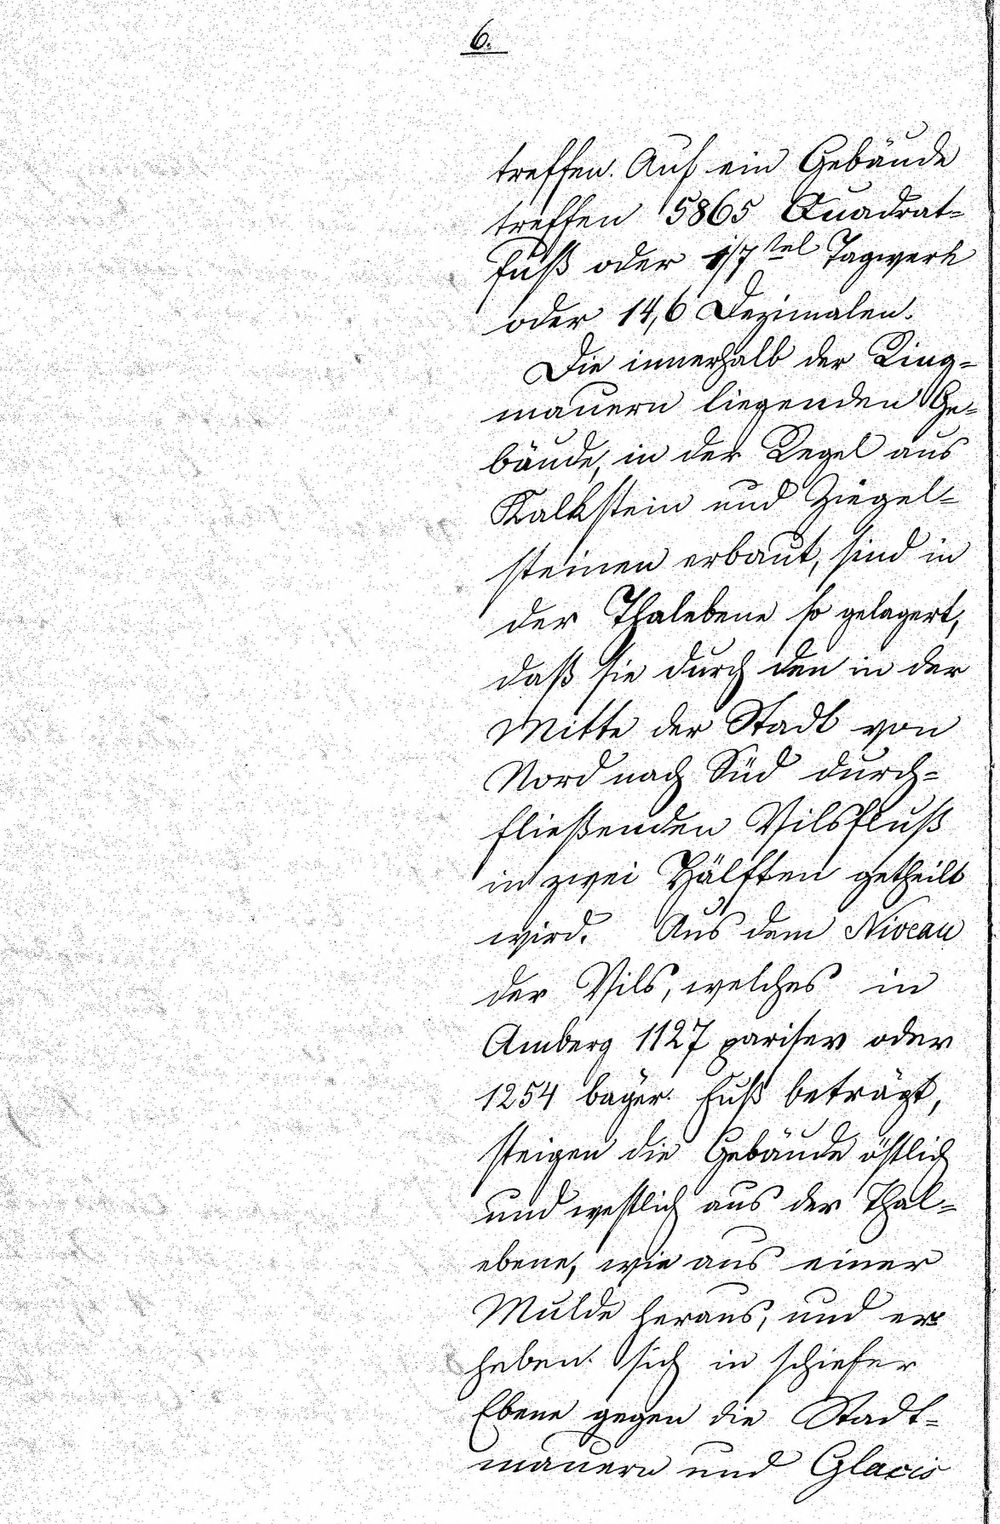 6.
treffen. Auf ein Gebäude
treffen 5865 Quadrat=
fuß oder 1/7tel Tagwerk
oder 14,6 Dezimalen.
Die innerhalb der Ring=
mauern liegenden Ge=
bäude, in der Regel aus
Kalkstein und Ziegel=
steinen erbaut, sind in
der Thalebene so gelagert,
daß sie durch den in der
Mitte der Stadt von
Nord nach Süd durch=
fließenden Vilsfluß
in zwei Hälften getheilt
wird. Aus dem Niveau
der Vils, welches in
Amberg 1127 pariser oder
1254 bayer. Fuß beträgt,
steigen die Gebäude östlich
und westlich aus der Thal=
ebene, wie aus einer
Mulde heraus, und er=
heben sich in schiefer
Ebene gegen die Stadt=
mauern und Glacis